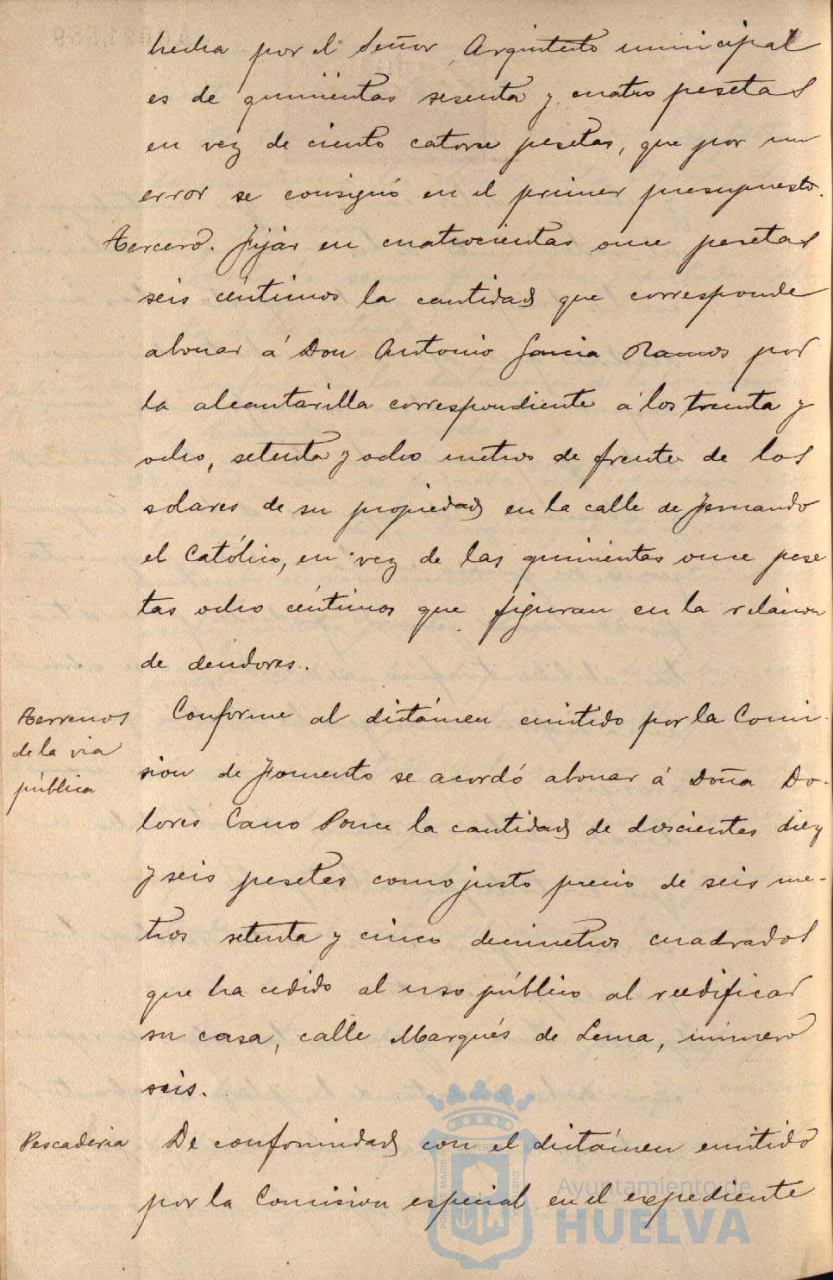 hecha por el Señor Arquitecto municipal
es de quinientas sesenta y cuatro pesetas
en vez de ciento catorse pesetas, que por un
error se consignó en el primer presupuesto.
Tercero. Fijar en cuatrocientas once pesetas
seis céntimos la cantidad que corresponde
abonar á Don Antonio Garcia Ramos por
la alcantarilla correspondiente á los treinta y
ocho, setenta y ocho metros de frente de los
solares de su propiedad en la calle de Fernando
el Católico, en vez de las quinientas once pese
tas ocho céntimos que figuran en la relacion
de deudores.
Terrenos de la via pública
Conforme al dictámen emitido por la Comi-
sion de Fomento se acordó abonar á Doña Do-
lores Cano Ponce la cantidad de doscientas diez
y seis pesetas como justo precio de seis me-
tros setenta y cinco decimetros cuadrados
que ha cedido al uso público al reedificar
su casa, calle Marqués de Lema, número
seis.
Pescaderia
De conformidad con el dictámen emitido
por la Comision especial en el expediente
Ayuntamiento de
HUELVA